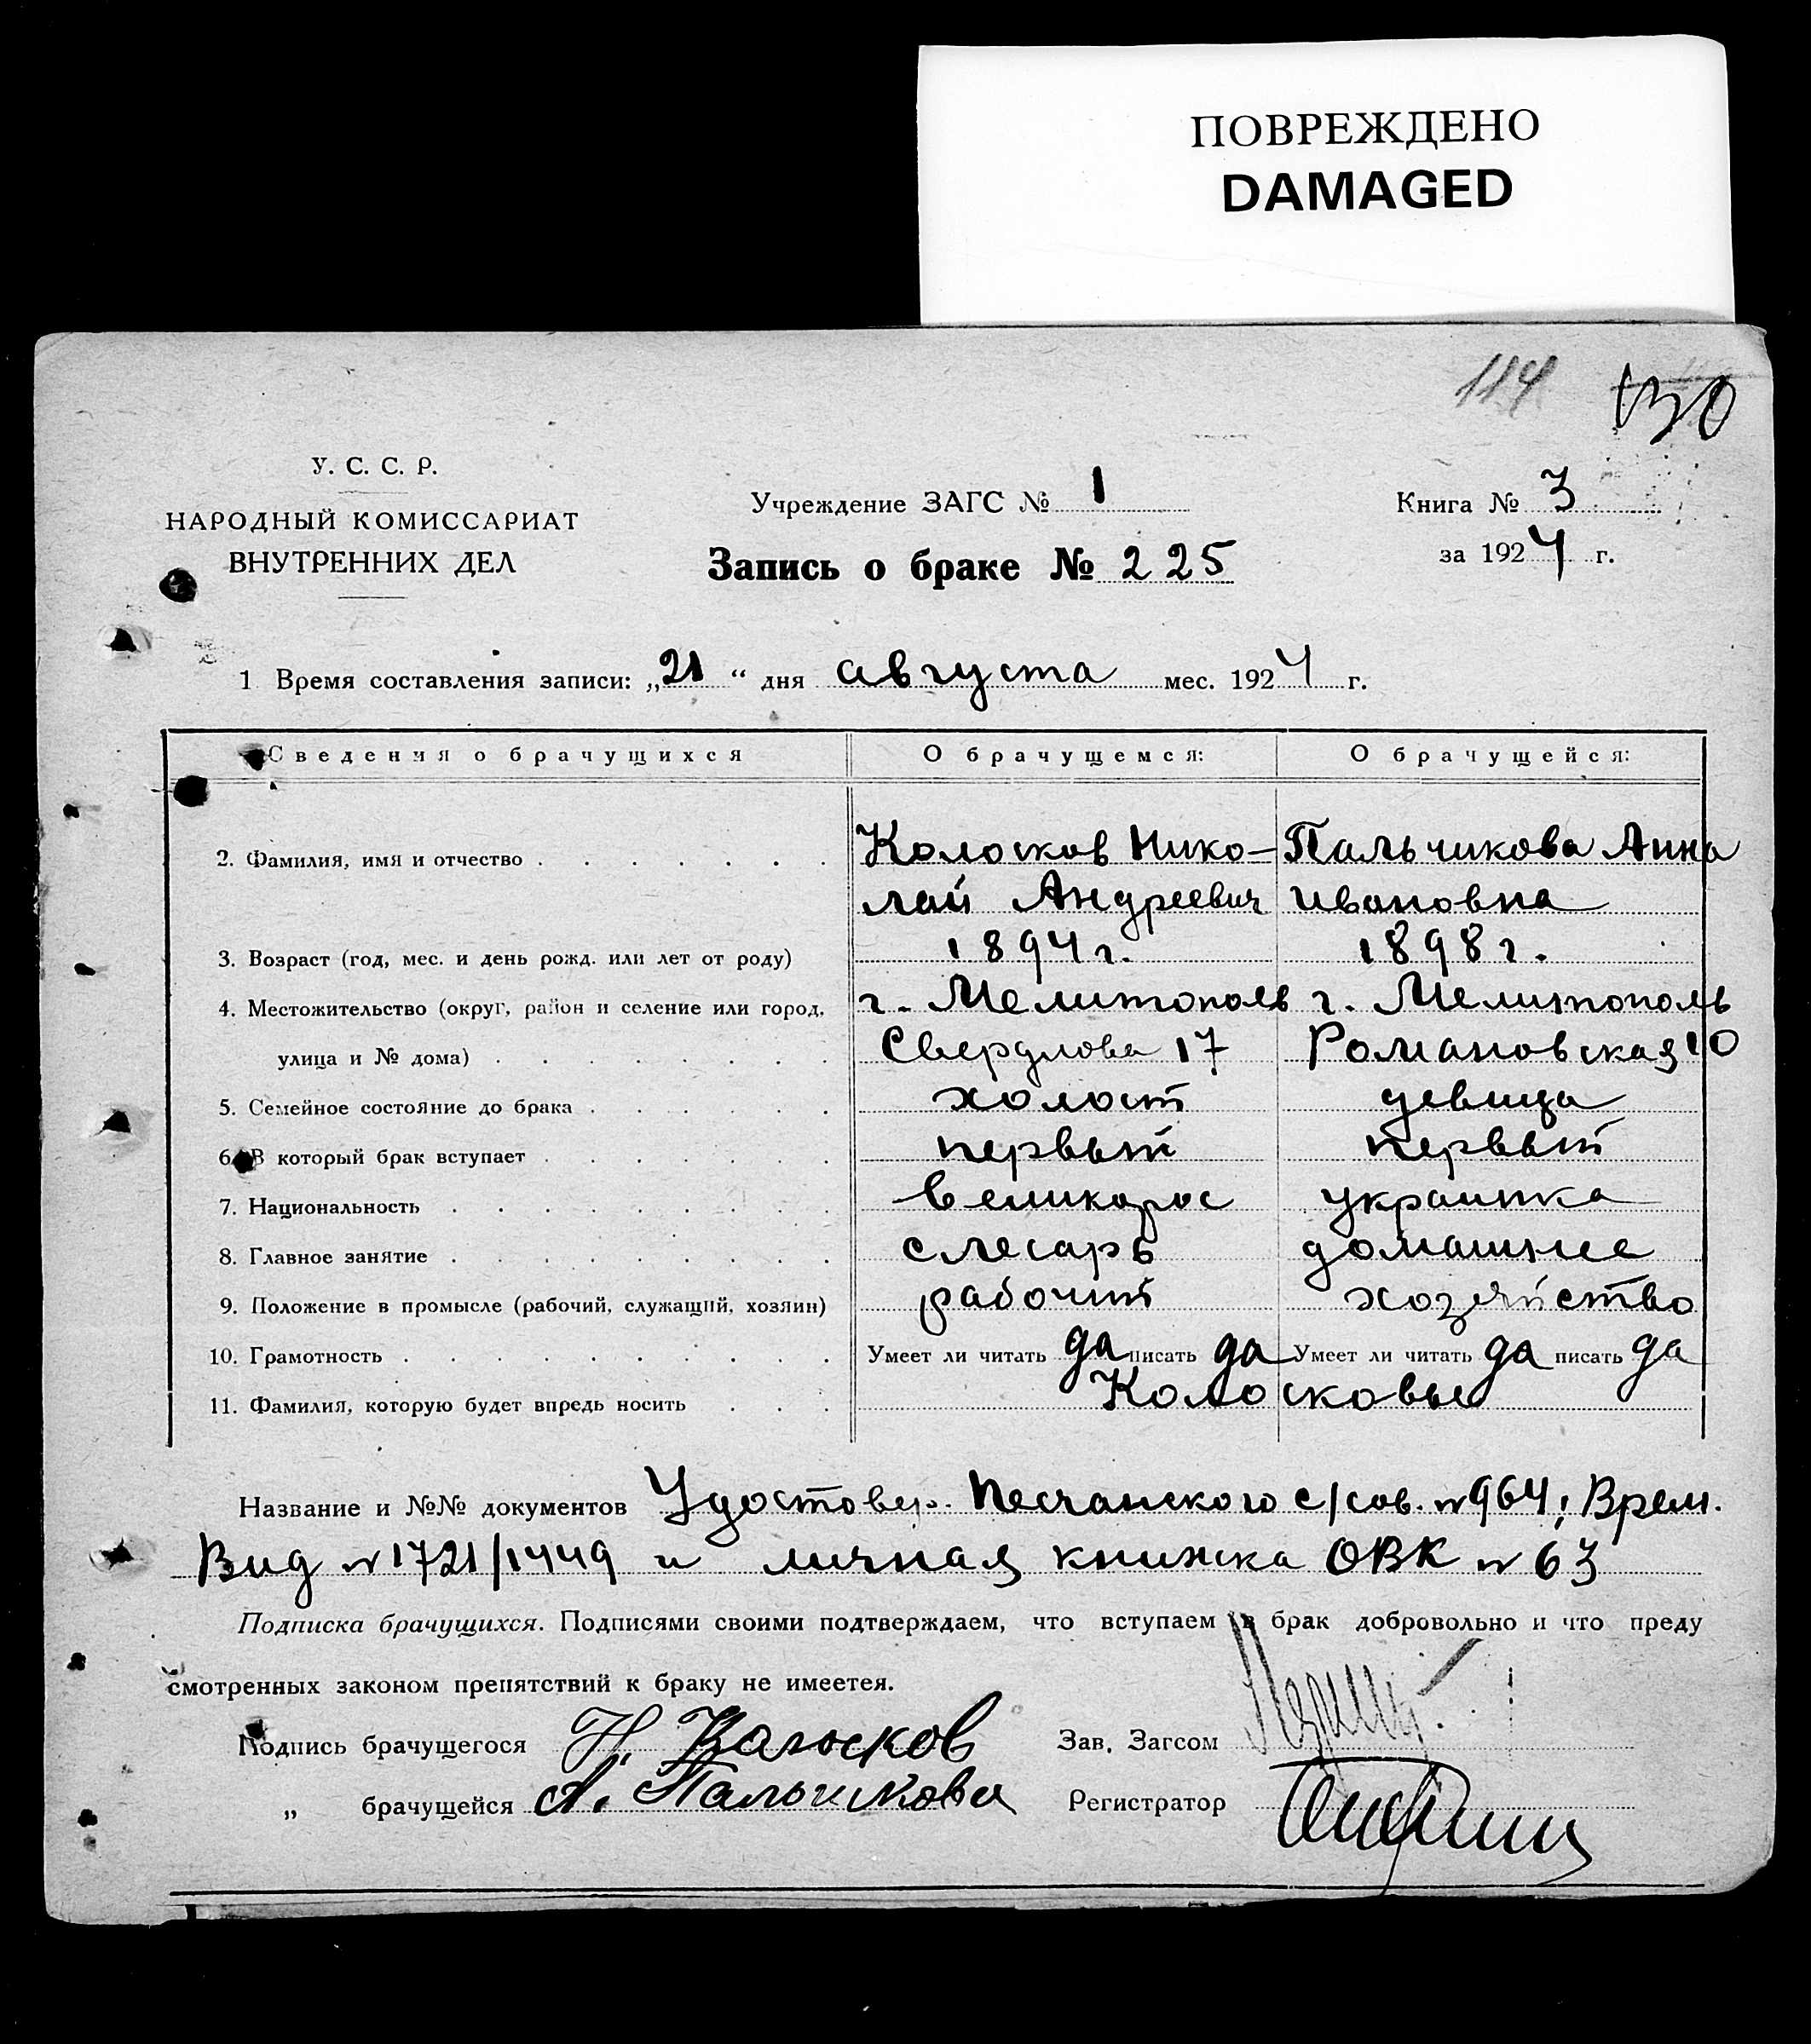 ПОВРЕЖДЕНО
DAMAGED
114 130
У. С. С. Р.
НАРОДНЫЙ КОМИССАРИАТ
ВНУТРЕННИХ ДЕЛ
Учреждение ЗАГС № 1
Книга № 3
Запись о браке № 225
за 1924 г.
1 Время составления записи: „21“ дня августа мес. 1924 г.
Сведения о брачущихся О брачущемся: О брачущейся:
2. Фамилия, имя и отчество . . . . . . . Колосков Нико- Пальчикова Анна
лай Андреевич Ивановна
3. Возраст (год, мес. и день рожд. или лет от роду) 1894 г. 1898 г.
4. Местожительство (округ, район и селение или город, г. Мелитополь г. Мелитополь
улица и № дома) . . . . . . . . Свердлова 17 Романовская 10
5. Семейное состояние до брака . . . . . . холост девица
6. В который брак вступает . . . . . . . первый первый
7. Национальность . . . . . . . . . великорос украинка
8. Главное занятие . . . . . . . . . слесарь домашнее
9. Положение в промысле (рабочий, служащий, хозяин) рабочий хозяйство
10. Грамотность . . . . . . . . . . Умеет ли читать да писать да Умеет ли читать да писать да
11. Фамилия, которую будет впредь носить . . . Колосковы
Название и №№ документов Удостовер. Песчанского с/сов. № 964; Врем.
Вид № 1721/1449 и личная книжка ОВК № 63
Подписка брачущихся. Подписями своими подтверждаем, что вступаем в брак добровольно и что преду
смотренных законом препятствий к браку не имеетея.
Подпись брачущегося Н Колосков Зав. Загсом
„ брачущейся А. Пальчикова Регистратор